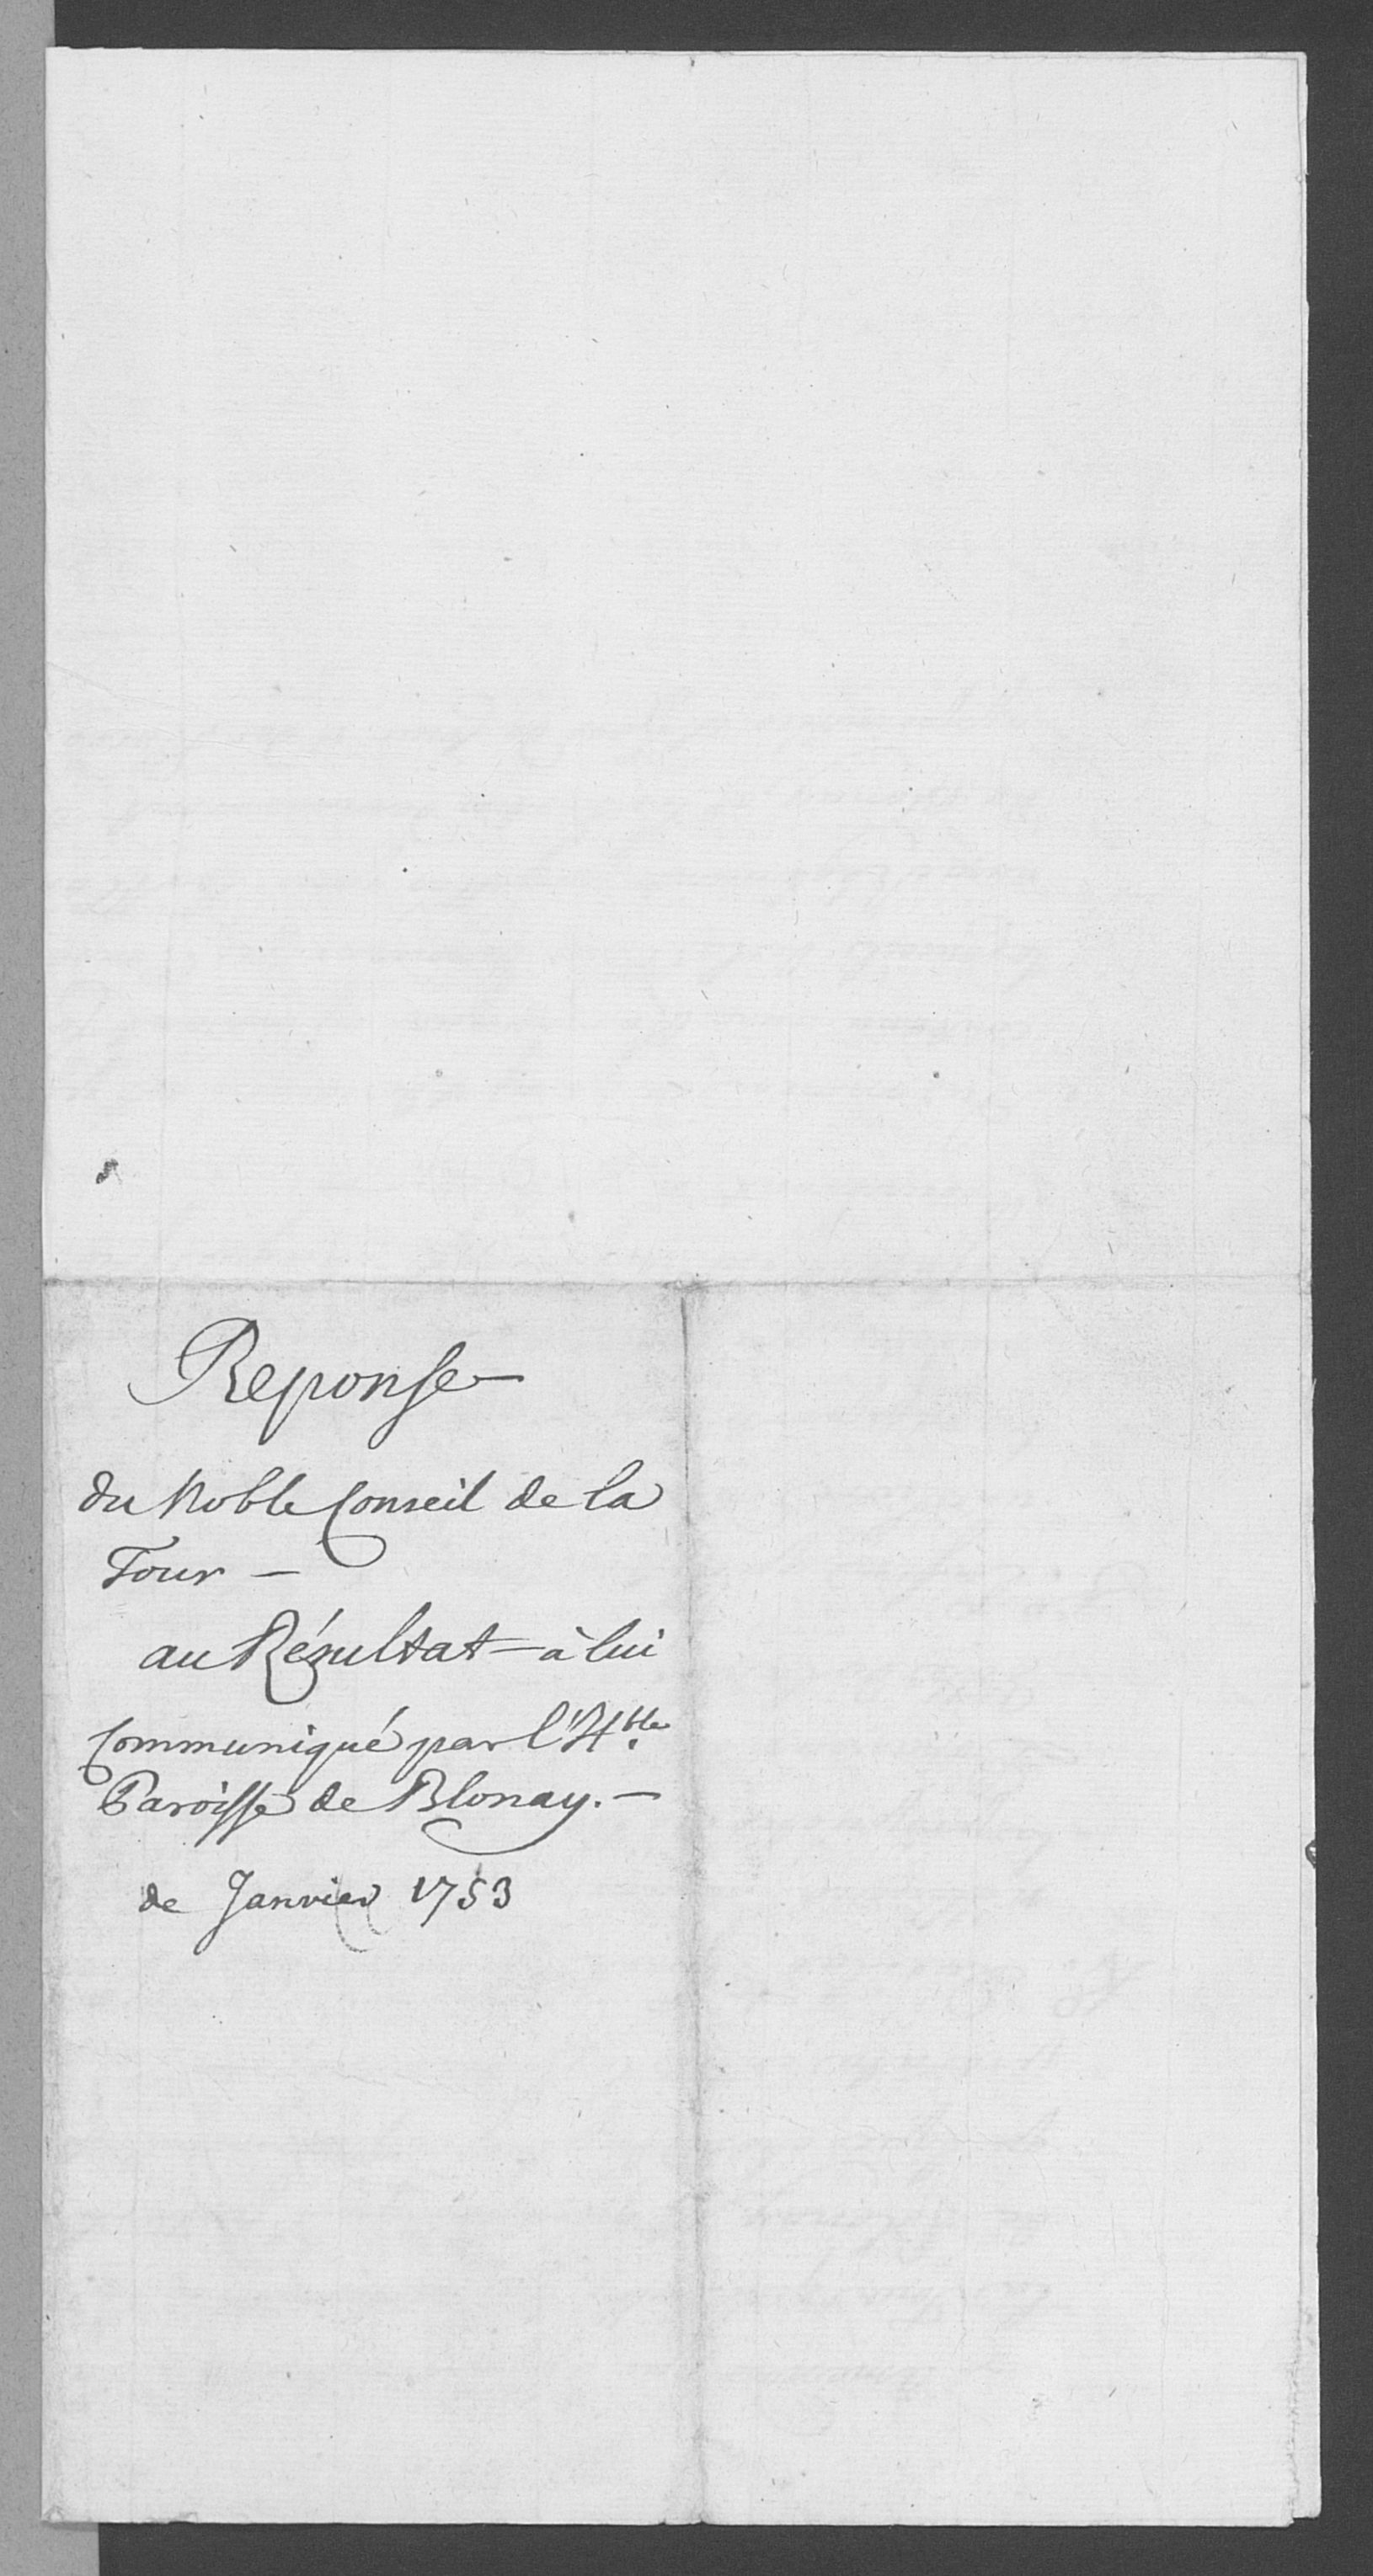 Reponse
du Noble Conseil de la
Tour —
au Rézultat à lui
Communiqué par l'H.ble
Paroisse de Blonay. —
de Janvier 1753